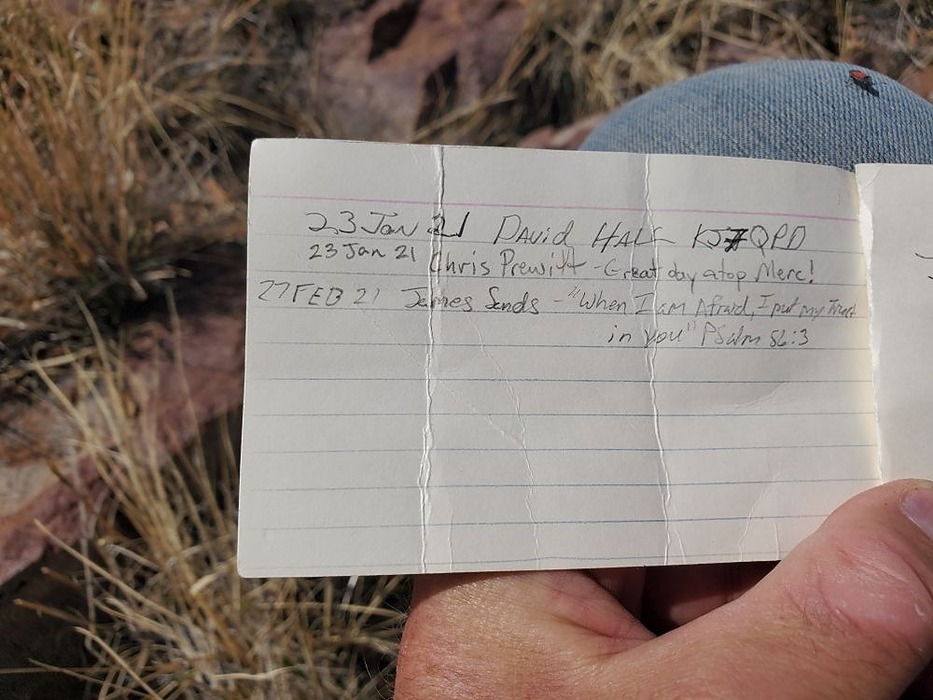 23 Jan 21 David HALL KJ7QPD
23 Jan 21 Chris Prewitt - Great day atop Merc!
27 FEB 21 James Sands - "When I am Afraid, I put my Trust
in you" Psalm 56:3